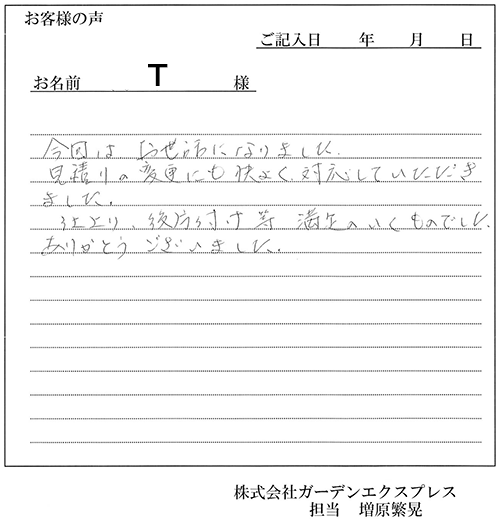 お客様の声
ご記入日 年 月 日
お名前 T 様
今回は お世話になりました.
見積りの変更にも快よく対応していただき
ました.
仕上り、後片付け等 満足のいくものでした.
ありがとうございました.
株式会社ガーデンエクスプレス
担当 増原繁晃